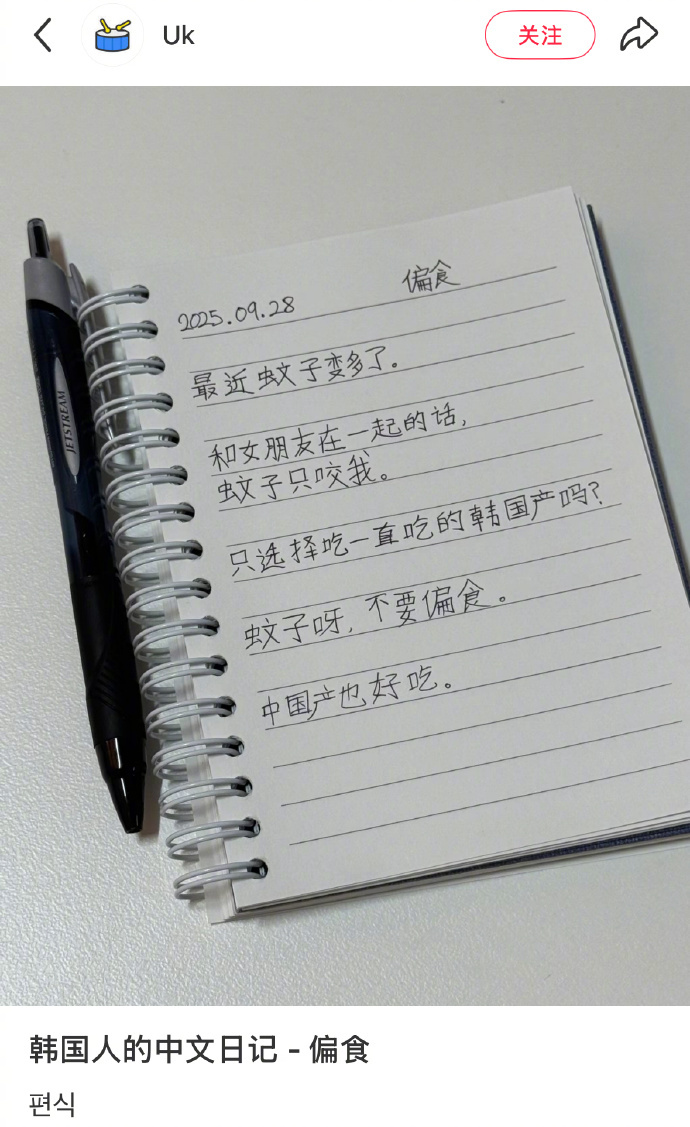 Uk
关注
JETSTREAM
2025.09.28 偏食
最近蚊子变多了。
和女朋友在一起的话,
蚊子只咬我。
只选择吃一直吃的韩国产吗?
蚊子呀, 不要偏食。
中国产也好吃。
韩国人的中文日记 - 偏食
편식